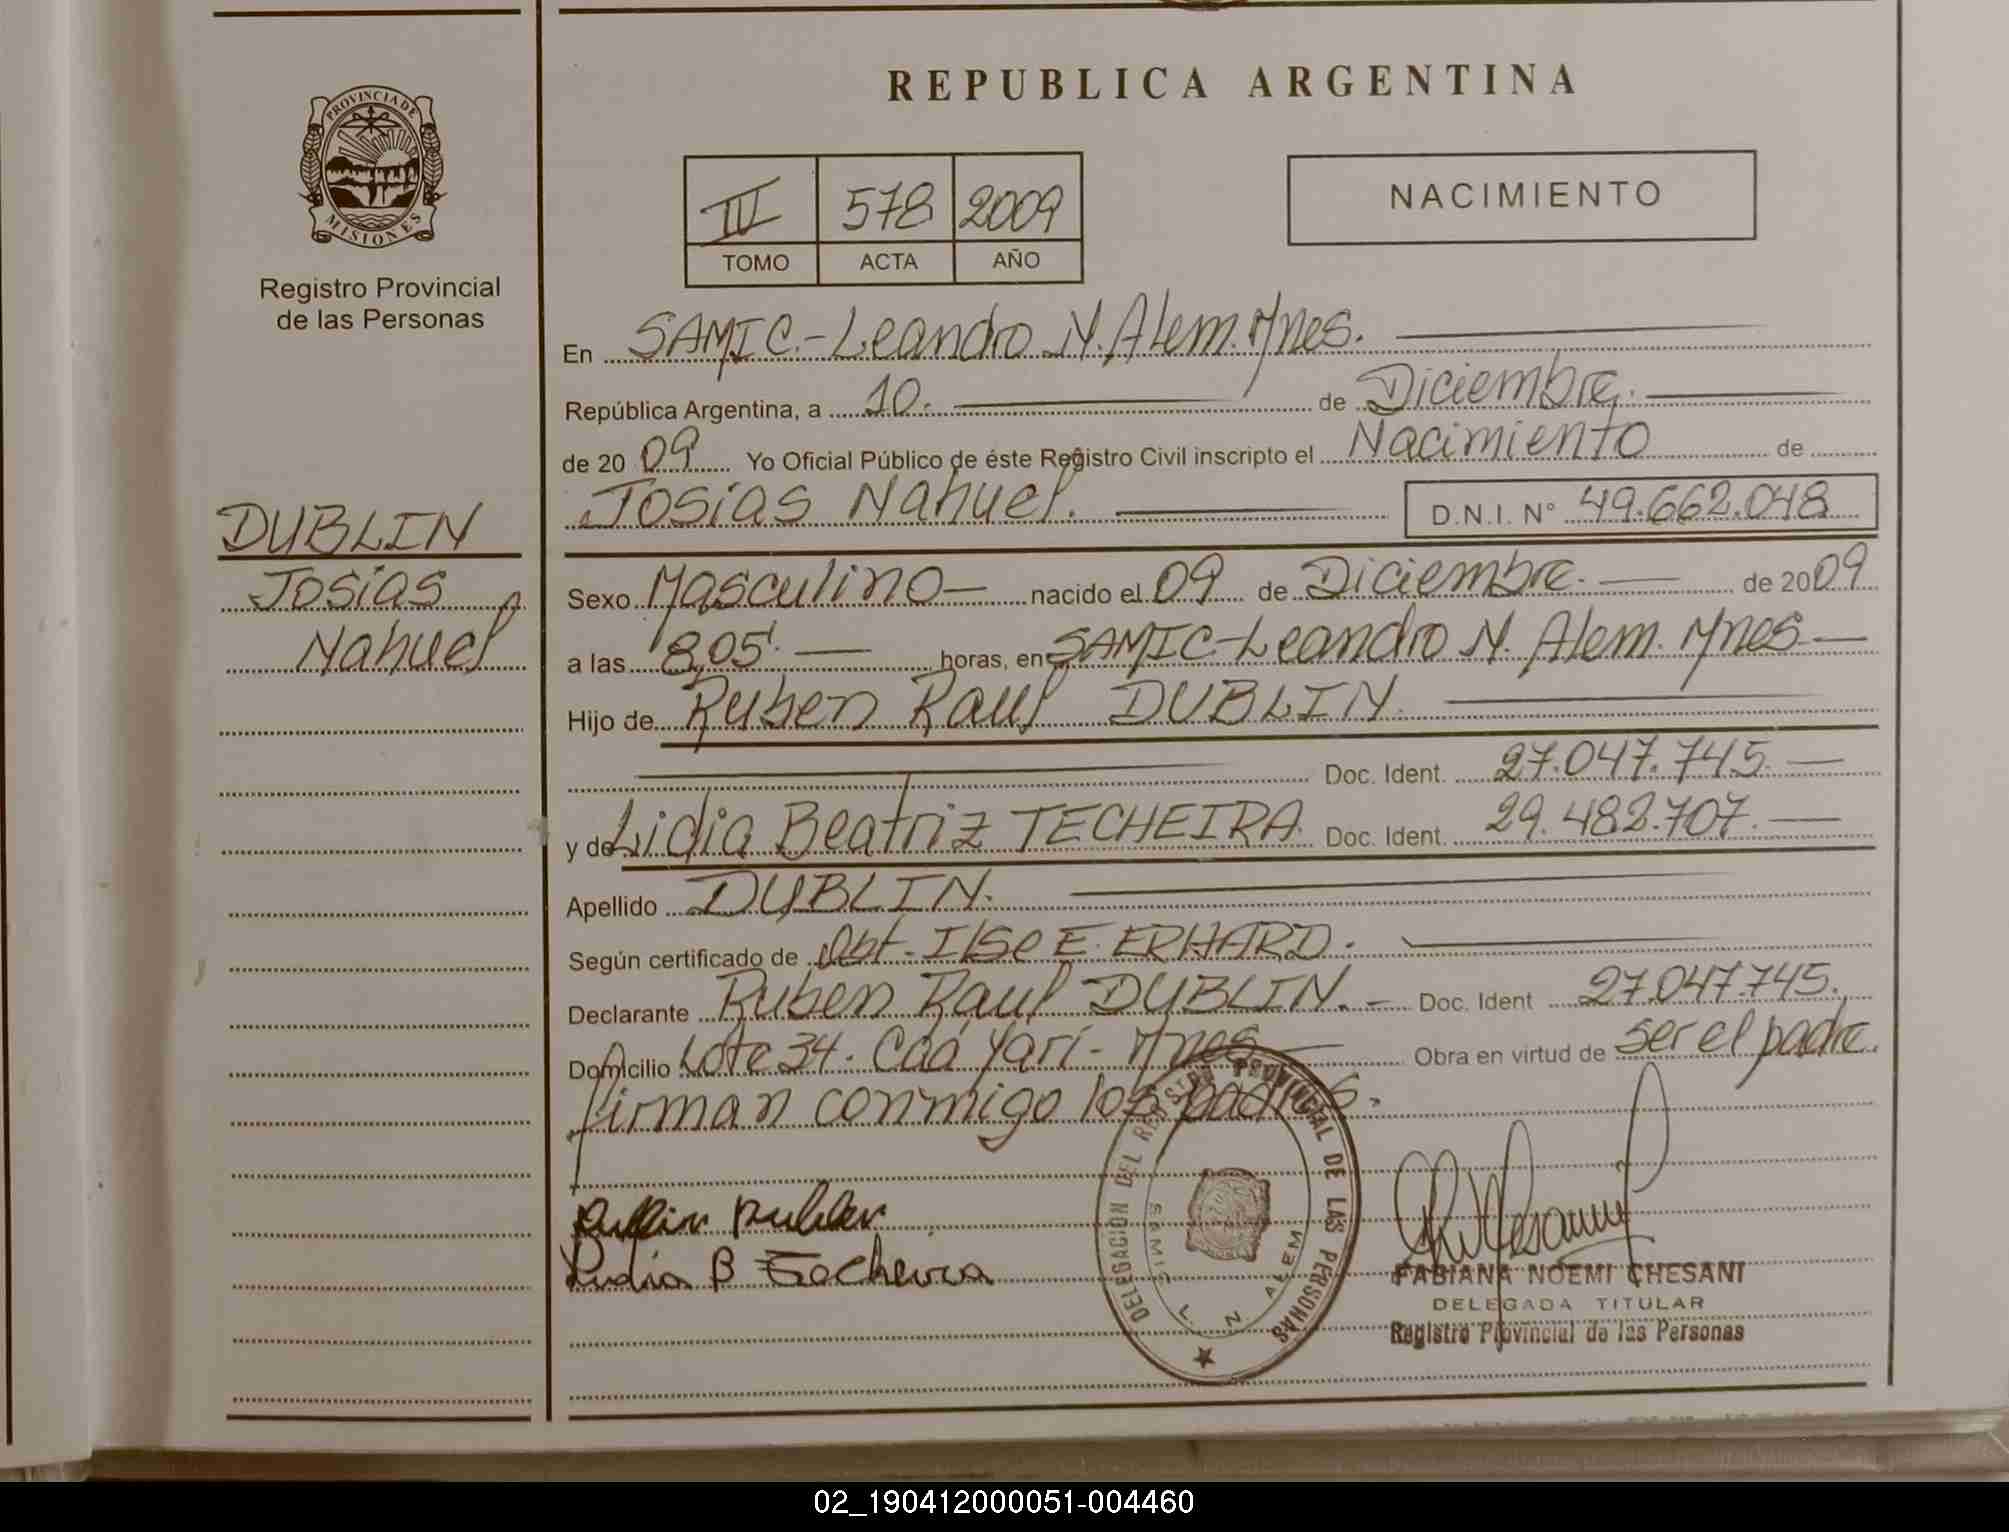 REPUBLICA ARGENTINA
PROVINCIA DE
MISIONES
Registro Provincial
de las Personas
III 578 2009
TOMO ACTA AÑO
NACIMIENTO
En SAMIC.-Leandro N. Alem. Mnes.
República Argentina, a 10. de Diciembre.
de 20 09 Yo Oficial Público de éste Registro Civil inscripto el Nacimiento de
Josías Nahuel. D.N.I. N° 49.662.048
DUBLIN
Josías
Nahuel
Sexo Masculino nacido el 09 de Diciembre. de 2009
a las 8,05'. horas, en SAMIC-Leandro N. Alem. Mnes
Hijo de Ruben Raul DUBLIN.
Doc. Ident. 27.047.745.
y de Lidia Beatriz TECHEIRA. Doc. Ident. 29.482.707.
Apellido DUBLIN.
Según certificado de Obt. Ilse E. ERHARD.
Declarante Ruben Raul DUBLIN. Doc. Ident 27.047.745.
Domicilio Lote 34. Caá Yarí - Mnes Obra en virtud de ser el padre.
firman conmigo los padres.
DELEGACION DEL REGISTRO PROVINCIAL DE LAS PERSONAS
SAMIC L. N. ALEM
Dublin Ruben
Lidia B Techeira
FABIANA NOEMI CHESANI
DELEGADA TITULAR
Registro Provincial de las Personas
02_190412000051-004460